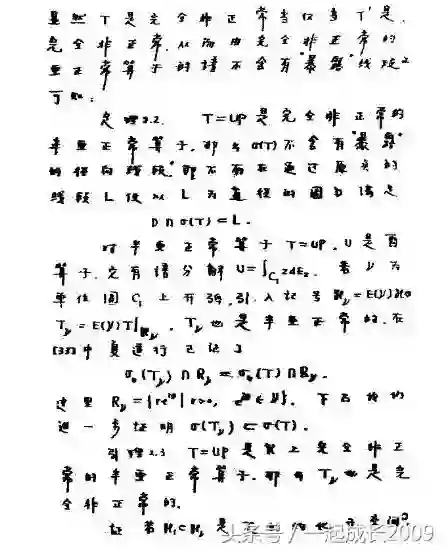 显然 T 是完全非正常当且仅当 T' 是
完全非正常. 从而由完全非正常的
亚正常算子的谱不会有"暴露"线段
可知:
定理2.2. T=UP是完全非正常的
半亚正常算子, 那么σ(T)不会有"暴露"
的径向线段, 即不存在通过原点的
线段 L 使以 L 为直径的圆 D 满足
D∩σ(T)=L.
对半亚正常算子 T=UP, U 是酉
算子, 它有谱分解 U=∫ zdE. 若 γ 为
单位圆 C₁ 上开弧, 引入记号
T_γ=E(γ)T|, T_γ 也是半亚正常的. 在
[33]中夏道行已证了
(T_γ)∩R_γ=(T)∩R_γ.
这里 R_γ={re^{iθ}|r>0, e^{iθ}∈γ}. 下面我们
进一步证明 σ(T_γ)⊂σ(T).
引理2.3 T=UP是上完全非正
常的半亚正常算子. 那么 T_γ 也是完
全非正常的.
证 若
头条 / 一起成长2009